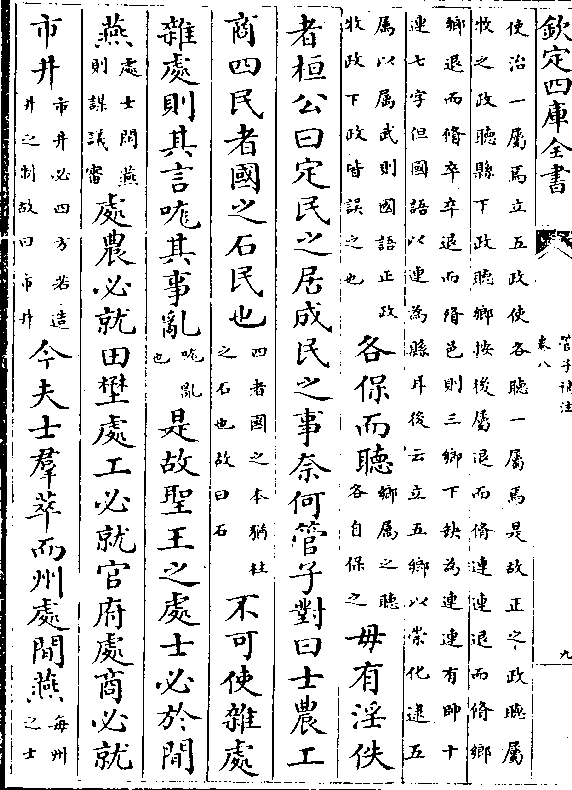 欽定四庫全書
管子補注
卷八
九
使治一屬焉立五政使各聽一屬焉是故正之政聽屬
牧之政聽縣下政聽鄉按後屬退而脩連連退而脩鄉
鄉退而脩卒卒退而脩邑則三鄉下缺為連連有帥十
連七字但國語以連為縣耳後云立五鄉以崇化建五
屬以厲武則國語正政
牧政下政皆誤之也
各保而聽
鄉屬之聽
各自保之
毋有淫佚
者桓公曰定民之居成民之事奈何管子對曰士農工
商四民者國之石民也
四者國之本猶柱
之石也故曰石
不可使雜處
雜處則其言哤其事亂
哤亂
也
是故聖王之處士必於閒
燕
處士閒燕
則謀議審
處農必就田壄處工必就官府處商必就
市井
市井必四方若造
井之制故曰市井
今夫士羣萃而州處閒燕
每州
之士